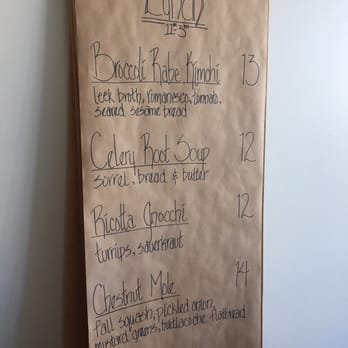 Lunch
11ᵃᵐ-3ᵖᵐ
Broccoli Rabe Kimchi 13
leek broth, romanesco, tomato,
seared sesame bread
Celery Root Soup 12
sorrel, bread & butter
Ricotta Gnocchi 12
turnips, sauerkraut
Chestnut Mole 14
fall squash, pickled onion,
mustard greens, huitlacoche flatbread